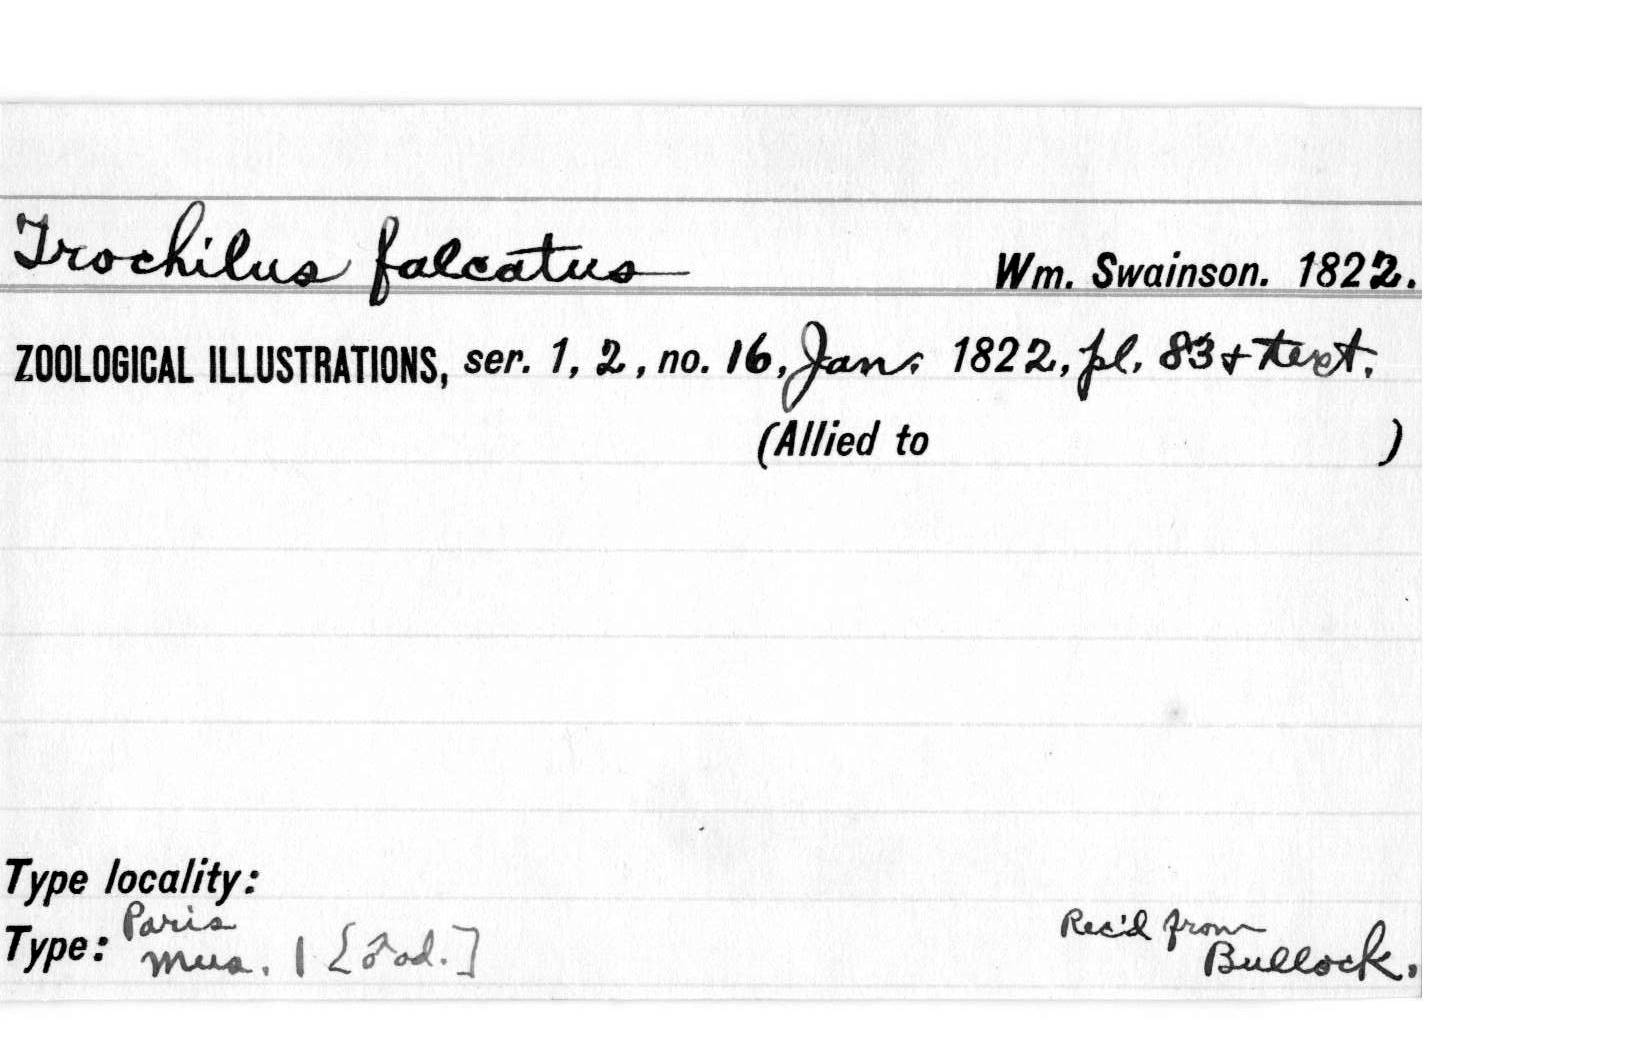 Trochilus falcatus Wm. Swainson. 1822.
ZOOLOGICAL ILLUSTRATIONS, ser. 1, 2, no. 16, Jan. 1822, pl. 83 + text.
(Allied to )
Type locality:
Type: Paris Mus. 1 [♂ ad.] Rec'd from
Bullock.